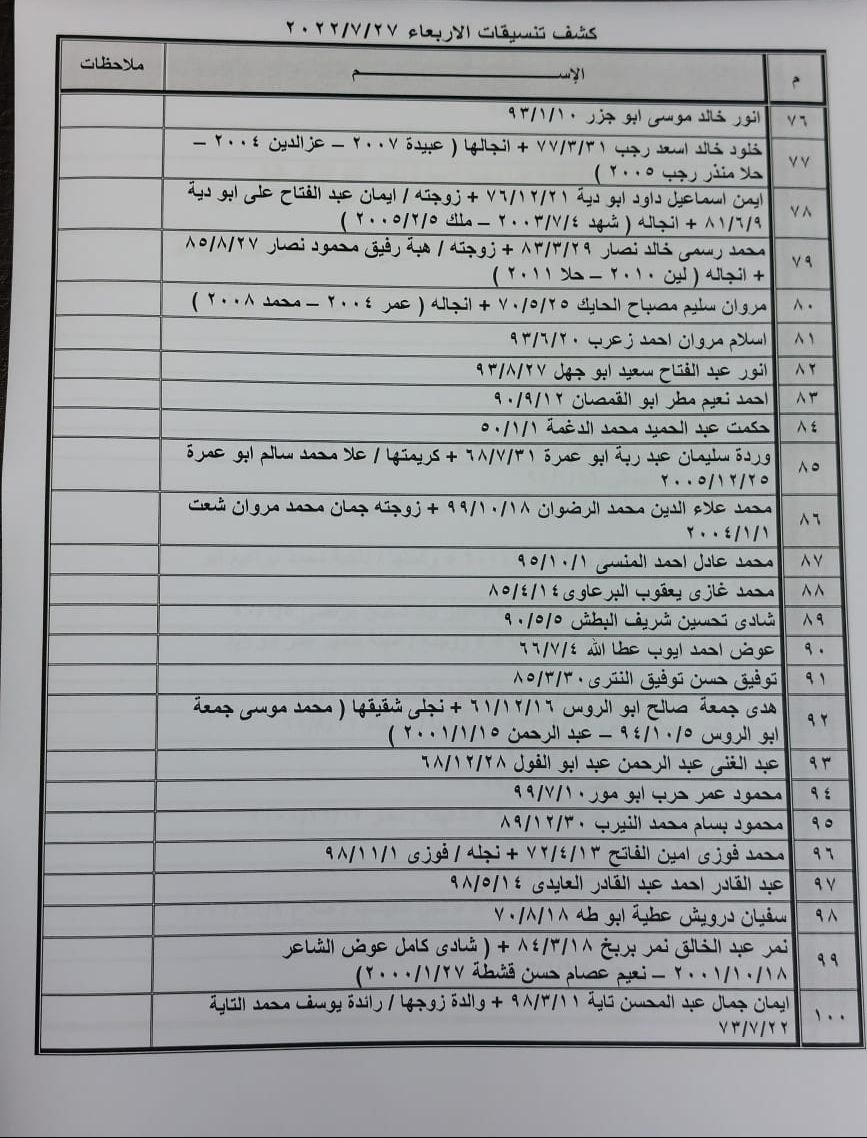 كشف تنسيقات الاربعاء ٢٠٢٢/٧/٢٧
م الإســـــــم ملاحظات
٧٦ انور خالد موسى ابو جزر ٩٣/١/١٠
٧٧ خلود خالد اسعد رجب ٧٧/٣/٣١ + انجالها ( عبيدة ٢٠٠٧ – عزالدين ٢٠٠٤ –
حلا منذر رجب ٢٠٠٥ )
٧٨ ايمن اسماعيل داود ابو دية ٧٦/١٢/٢١ + زوجته / ايمان عبد الفتاح على ابو دية
٨١/٦/٩ + انجاله ( شهد ٢٠٠٣/٧/٤ – ملك ٢٠٠٥/٢/٥ )
٧٩ محمد رسمى خالد نصار ٨٣/٣/٢٩ + زوجته / هبة رفيق محمود نصار ٨٥/٨/٢٧
+ انجاله ( لين ٢٠١٠ – حلا ٢٠١١ )
٨٠ مروان سليم مصباح الحايك ٧٠/٥/٢٥ + انجاله ( عمر ٢٠٠٤ – محمد ٢٠٠٨ )
٨١ اسلام مروان احمد زعرب ٩٣/٦/٢٠
٨٢ انور عبد الفتاح سعيد ابو جهل ٩٣/٨/٢٧
٨٣ احمد نعيم مطر ابو القمصان ٩٠/٩/١٢
٨٤ حكمت عبد الحميد محمد الدغمة ٥٠/١/١
٨٥ وردة سليمان عبد ربة ابو عمرة ٦٨/٧/٣١ + كريمتها / علا محمد سالم ابو عمرة
٢٠٠٥/١٢/٢٥
٨٦ محمد علاء الدين محمد الرضوان ٩٩/١٠/١٨ + زوجته جمان محمد مروان شعت
٢٠٠٤/١/١
٨٧ محمد عادل احمد المنسى ٩٥/١٠/١
٨٨ محمد غازى يعقوب البرعاوى ٨٥/٤/١٤
٨٩ شادى تحسين شريف البطش ٩٠/٥/٥
٩٠ عوض احمد ايوب عطا الله ٦٦/٧/٤
٩١ توفيق حسن توفيق النترى ٨٥/٣/٣٠
٩٢ هدى جمعة صالح ابو الروس ٦١/١٢/١٦ + نجلى شقيقها ( محمد موسى جمعة
ابو الروس ٩٤/١٠/٥ – عبد الرحمن ٢٠٠١/١/١٥ )
٩٣ عبد الغنى عبد الرحمن عبد ابو الفول ٦٨/١٢/٢٨
٩٤ محمود عمر حرب ابو مور ٩٩/٧/١٠
٩٥ محمود بسام محمد النيرب ٨٩/١٢/٣٠
٩٦ محمد فوزى امين الفاتح ٧٢/٤/١٣ + نجله / فوزى ٩٨/١١/١
٩٧ عبد القادر احمد عبد القادر العايدى ٩٨/٥/١٤
٩٨ سفيان درويش عطية ابو طه ٧٠/٨/١٨
٩٩ نمر عبد الخالق نمر بربخ ٨٤/٣/١٨ + ( شادى كامل عوض الشاعر
٢٠٠١/١٠/١٨ – نعيم عصام حسن قشطة ٢٠٠٠/١/٢٧)
١٠٠ ايمان جمال عبد المحسن تاية ٩٨/٣/١١ + والدة زوجها / رائدة يوسف محمد التاية
٧٣/٧/٢٢